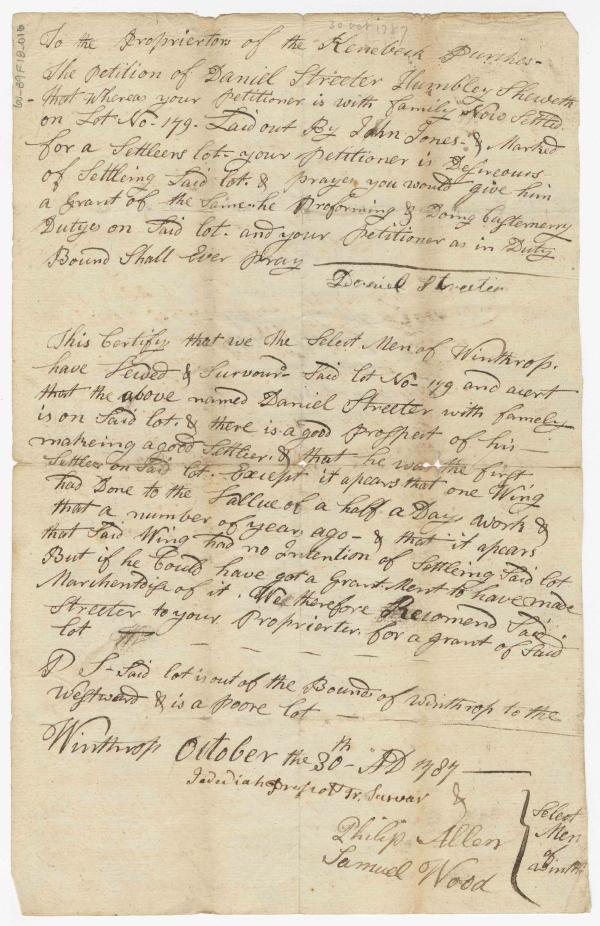 30 oct 1787
To the Propriertors of the Kenebeck Purches-
The Petition of Daniel Streeter Humbley Sheweth
that whereas your Petitioner is with family Now Settled
on Lot No- 179- Laid out By John Jones- & Marked
for a Settleers lot- your Petitioner is Desireours
of Settleing Said lot. & prayes you would give him
a Grant of the Same- he Proforming & Doing Custemerry
Dutyes on Said lot. and your Petitioner as in Duty
Bound Shall Ever Pray
Daniel Streeter
This Certify that we the Select Men of Winthrop.
have Sewed & Survourd Said lot No- 179 and avert
that the above named Daniel Streeter with famely
is on Said lot. & there is a good Prospect of his
makeing a good Settler. & that he was the first
Settler on Said lot. Except it apears that one Wing
had Done to the Vallue of a half a Days work &
that a number of years ago - & that it apears
that Said Wing had no Intention of Settleing Said lot
But if he Could have got a Grant Ment to have made
Marchentdise of it. We therefore Recomend Said
Streeter to your Proprierter. for a grant of Said
lot
P S- Said lot is out of the Bounds of Winthrop to the
Westward & is a Poore lot
Winthrop October the 30th AD 1787
Jedediah Prescot Jr. Survar &
Philip Allen
Samuel Wood
Select
Men
of